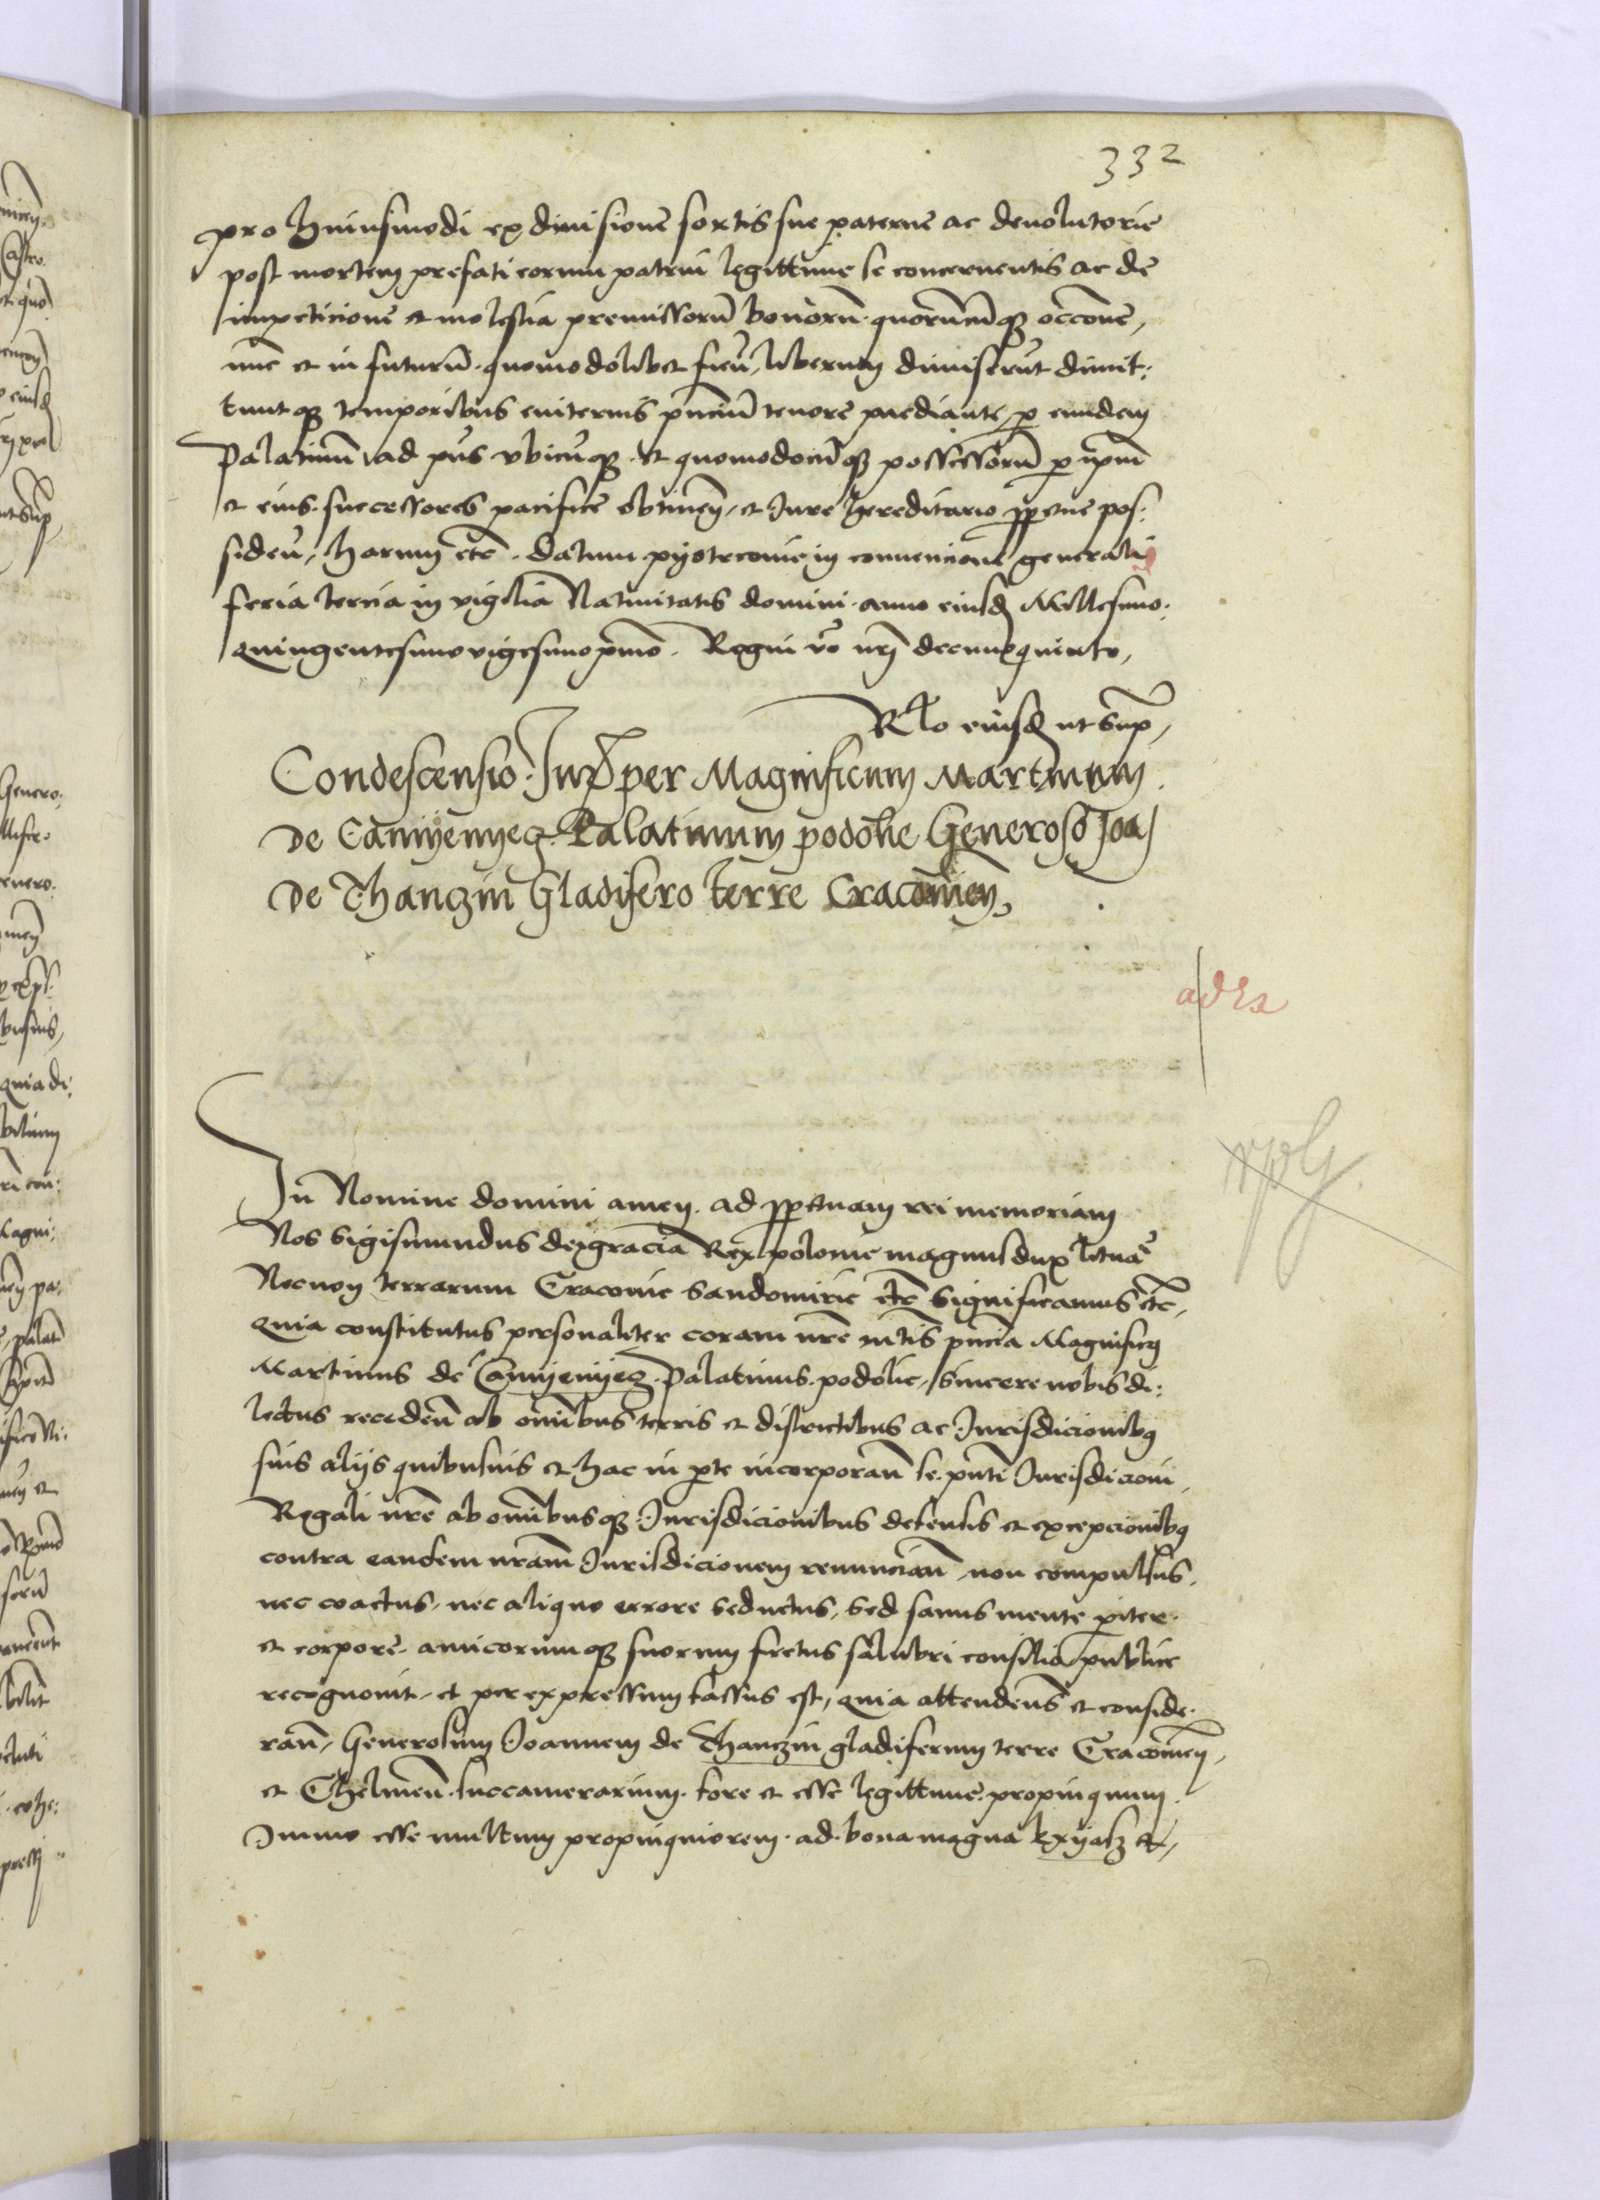 332
pro huiusmodi ex divisione sortis sue paterne ac devolutorie
post mortem prefati eorum patrui legittime se concernentis ac de
impeticione et molestia premissorũ bonorũ quorũcũqȝ occõne,
nũc et in futurũ quomodolibet fieñ, liberum dimiserũt dimit:
tunt qȝ temporibus eviternis pñciũ tenore mediante, p̱ eundem
Palatinũ ad pñs ubicũqȝ et quomodocũqȝ possessorũ p̱ ipm̃
et eius successores pacifice obtineñ, et Jure hereditario pp̱etue pos:
sideñ, harum etc̃. Datum pyotrcovie in convencione generali
feria tercia in vigilia Nativitatis domini anno eiusd Millesimo
quingentesimo vigesimo primo. Regni vo nri decimo quinto,
Rl̃o eiusd ut sup̱,
Condescensio Jur per Magnificum Martinum
De Camyenyecz Palatinum podolie Generoso Joañ
De Thanczin Gladifero terre Cracovieñ,
ad Rx
In Nomine domini amen. ad pp̱etuam rei memoriam
Nos Sigismundus dei gracia Rex polonie magnus dux Lituã
Necnon terrarum Cracovie Sandomirie etc̃ Significamus etc̃,
Quia constitutus personaliter coram nr̃e mt̃is pñcia Magnificꝰ
Martinus de Camyenyecz Palatinus podolie, sincere nobis di:
lectus recedeñ ab om̃ibus terris et districtibus ac Jurisdicionibꝰ
suis aliis quibusvis et hac in p̱te incorporañ se p̃nti Jurisdicioni
Regali nr̃e ab om̃ibusqȝ Jurisdicionibus defensis et excepcionibꝰ
contra eandem nr̃am Jurisdicionem renuncciañ, non compulsus,
nec coactus, nec aliquo errore seductus, sed sanus mente p̱iter
et corpore, amicorumqȝ suorum fretus salubri consilio publice
recognovit, et per expressum fassus est, quia attendens et conside
rañ, Generosum Joannem de Thanczin gladiferum terre Cracovieñ,
et Chelmeñ. succamerarium fore et esse legittime propinquum
Immo esse multum propinquiorem ad bona magna Kxyasz et,